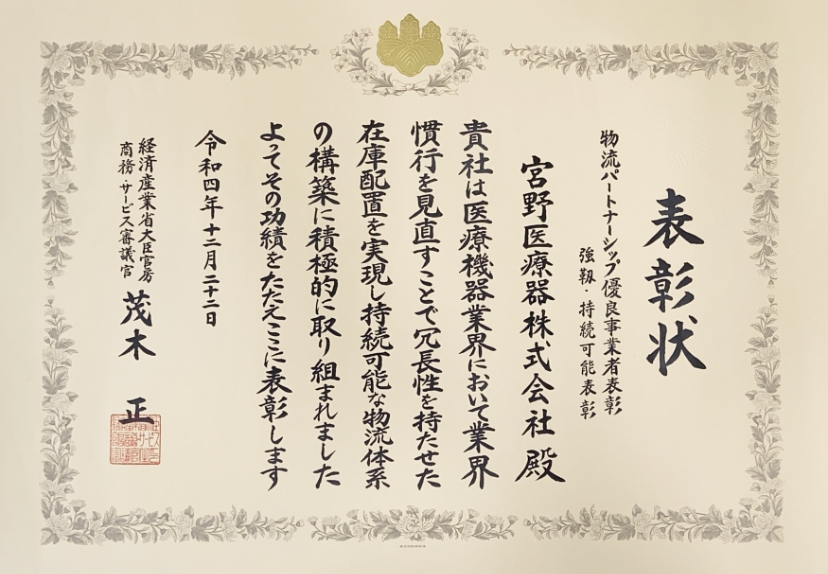 表彰状
物流パートナーシップ優良事業者表彰
強靱・持続可能表彰
宮野医療器株式会社殿
貴社は医療機器業界において業界
慣行を見直すことで冗長性を持たせた
在庫配置を実現し持続可能な物流体系
の構築に積極的に取り組まれました
よってその功績をたたえここに表彰します
令和四年十二月二十二日
経済産業省大臣官房
商務・サービス審議官
茂木 正